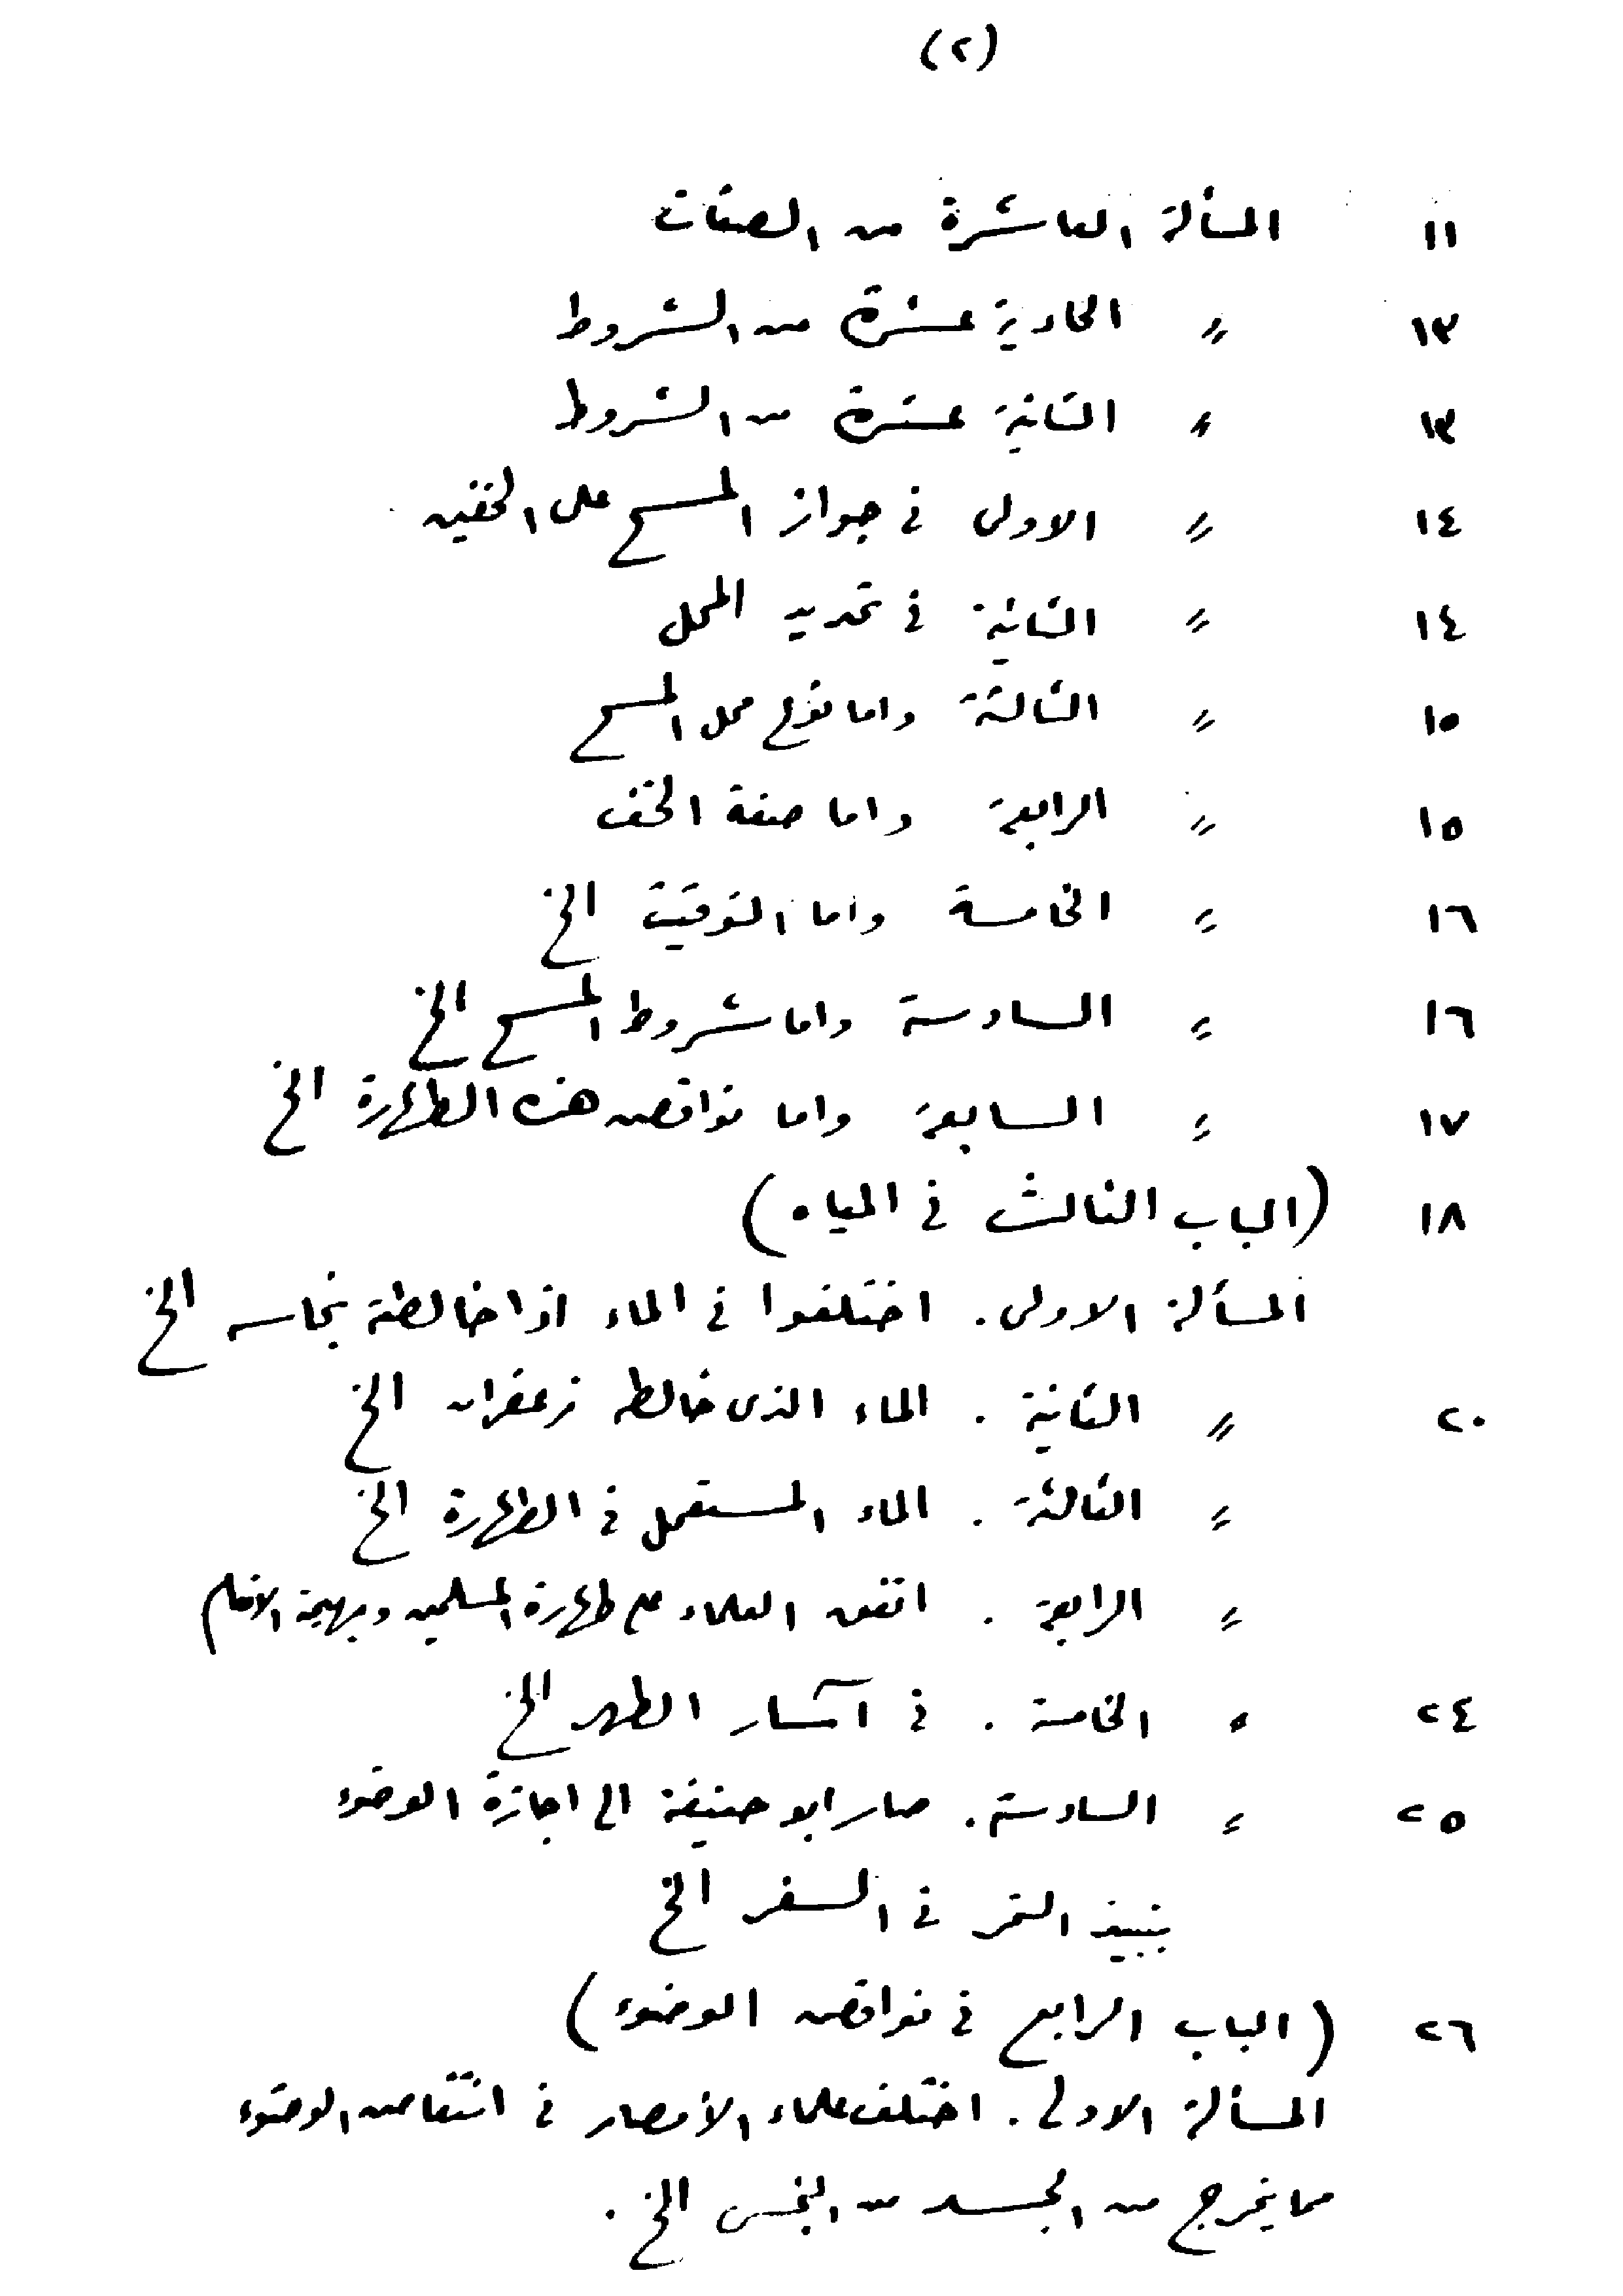 (٢)
١١ المسألة العاشرة من الصفات
١٣ 〃 الحادية عشرة من الشروط
١٣ 〃 الثانية عشرة من الشروط
١٤ 〃 الاولى في جواز المسح على الخفين
١٤ 〃 الثانية في تحديد المحل
١٥ 〃 الثالثة واما نوع محل المسح
١٥ 〃 الرابعة واما صفة الخف
١٦ 〃 الخامسة واما التوقيت الخ
١٦ 〃 السادسة واما شروط المسح الخ
١٧ 〃 السابعة واما نواقض هذه الطهارة الخ
١٨ (الباب الثالث في المياه)
المسألة الاولى. اختلفوا في الماء اذا خالطته نجاسه الخ
٢٠ 〃 الثانية. الماء الذى خالطه زعفران الخ
〃 الثالثة. الماء المستعمل في الطهارة الخ
〃 الرابعة. اتفق العلماء على طهارة المسلمين وبهيمة الانعام
٢٤ 〃 الخامسة. في آسار الطهر الخ
٢٥ 〃 السادسة. صار ابو حنيفة الى اجازة الوضوء
بنبيذ التمر في السفر الخ
٢٦ (الباب الرابع في نواقض الوضوء)
المسألة الاولى. اختلف علماء الأمصار في انتقاض الوضوء
مما يخرج من الجسد من النجس الخ.